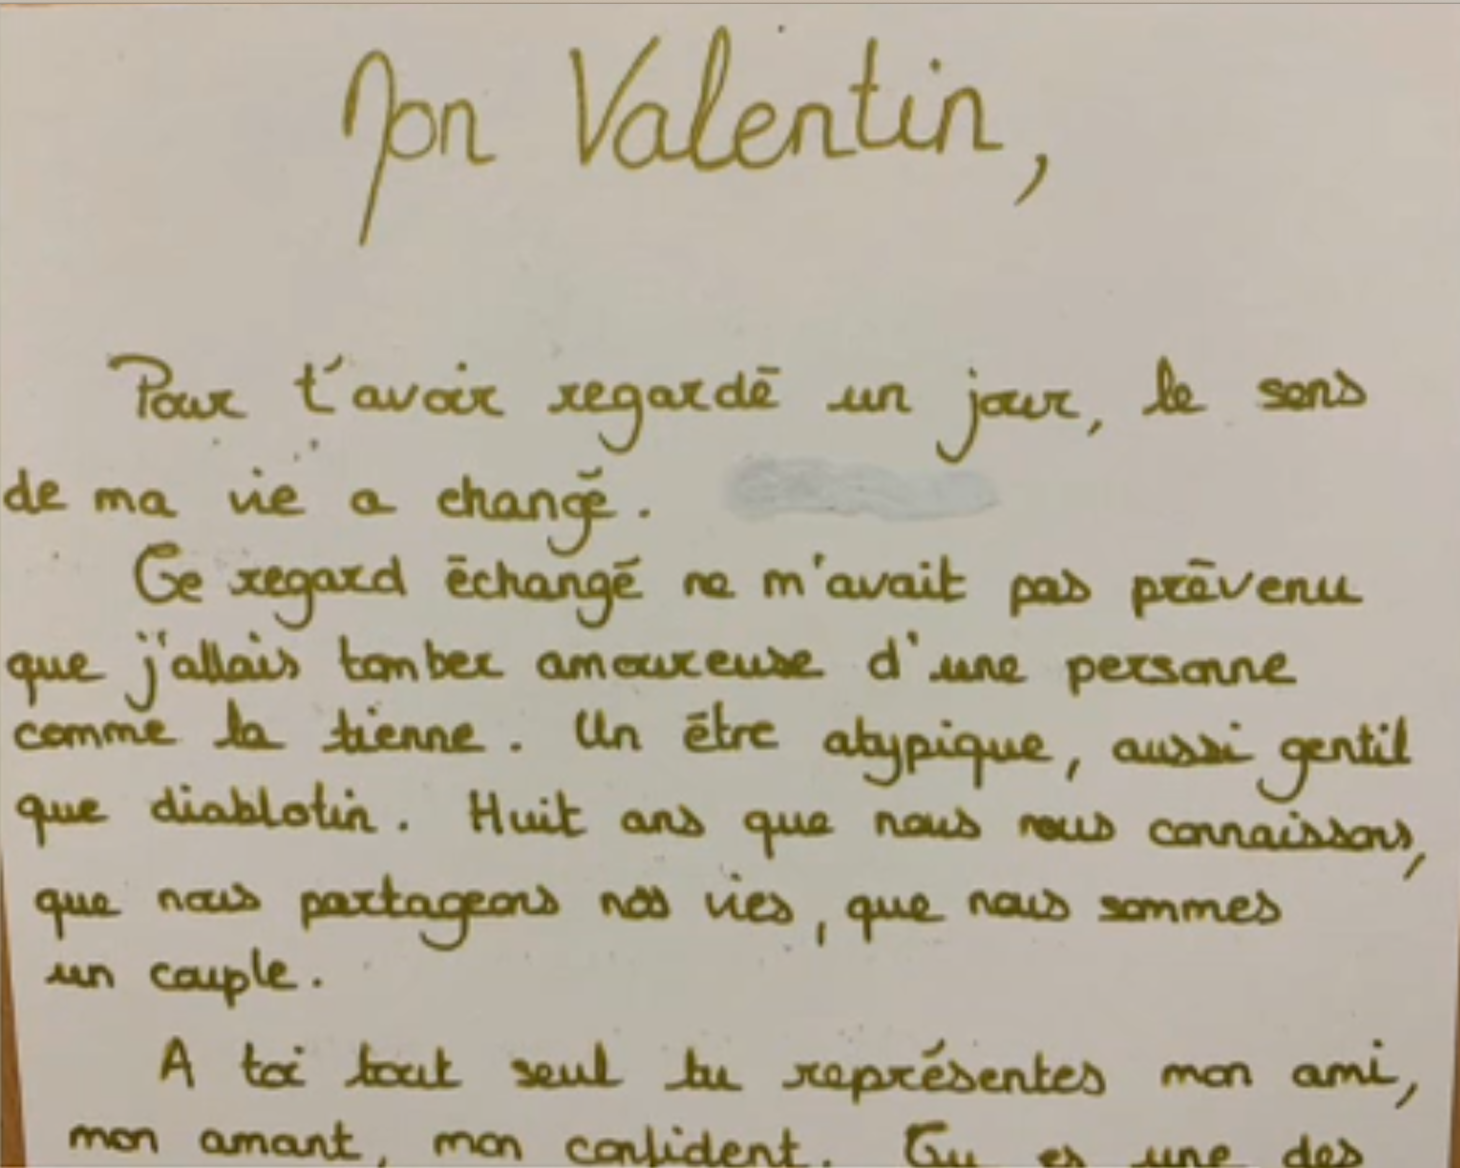 Mon Valentin,
Pour t'avoir regardé un jour, le sens
de ma vie a changé.
Ce regard échangé ne m'avait pas prévenu
que j'allais tomber amoureuse d'une personne
comme la tienne. Un être atypique, aussi gentil
que diablotin. Huit ans que nous nous connaissons,
que nous partageons nos vies, que nous sommes
un couple.
A toi tout seul tu représentes mon ami,
mon amant, mon confident. Tu es une des